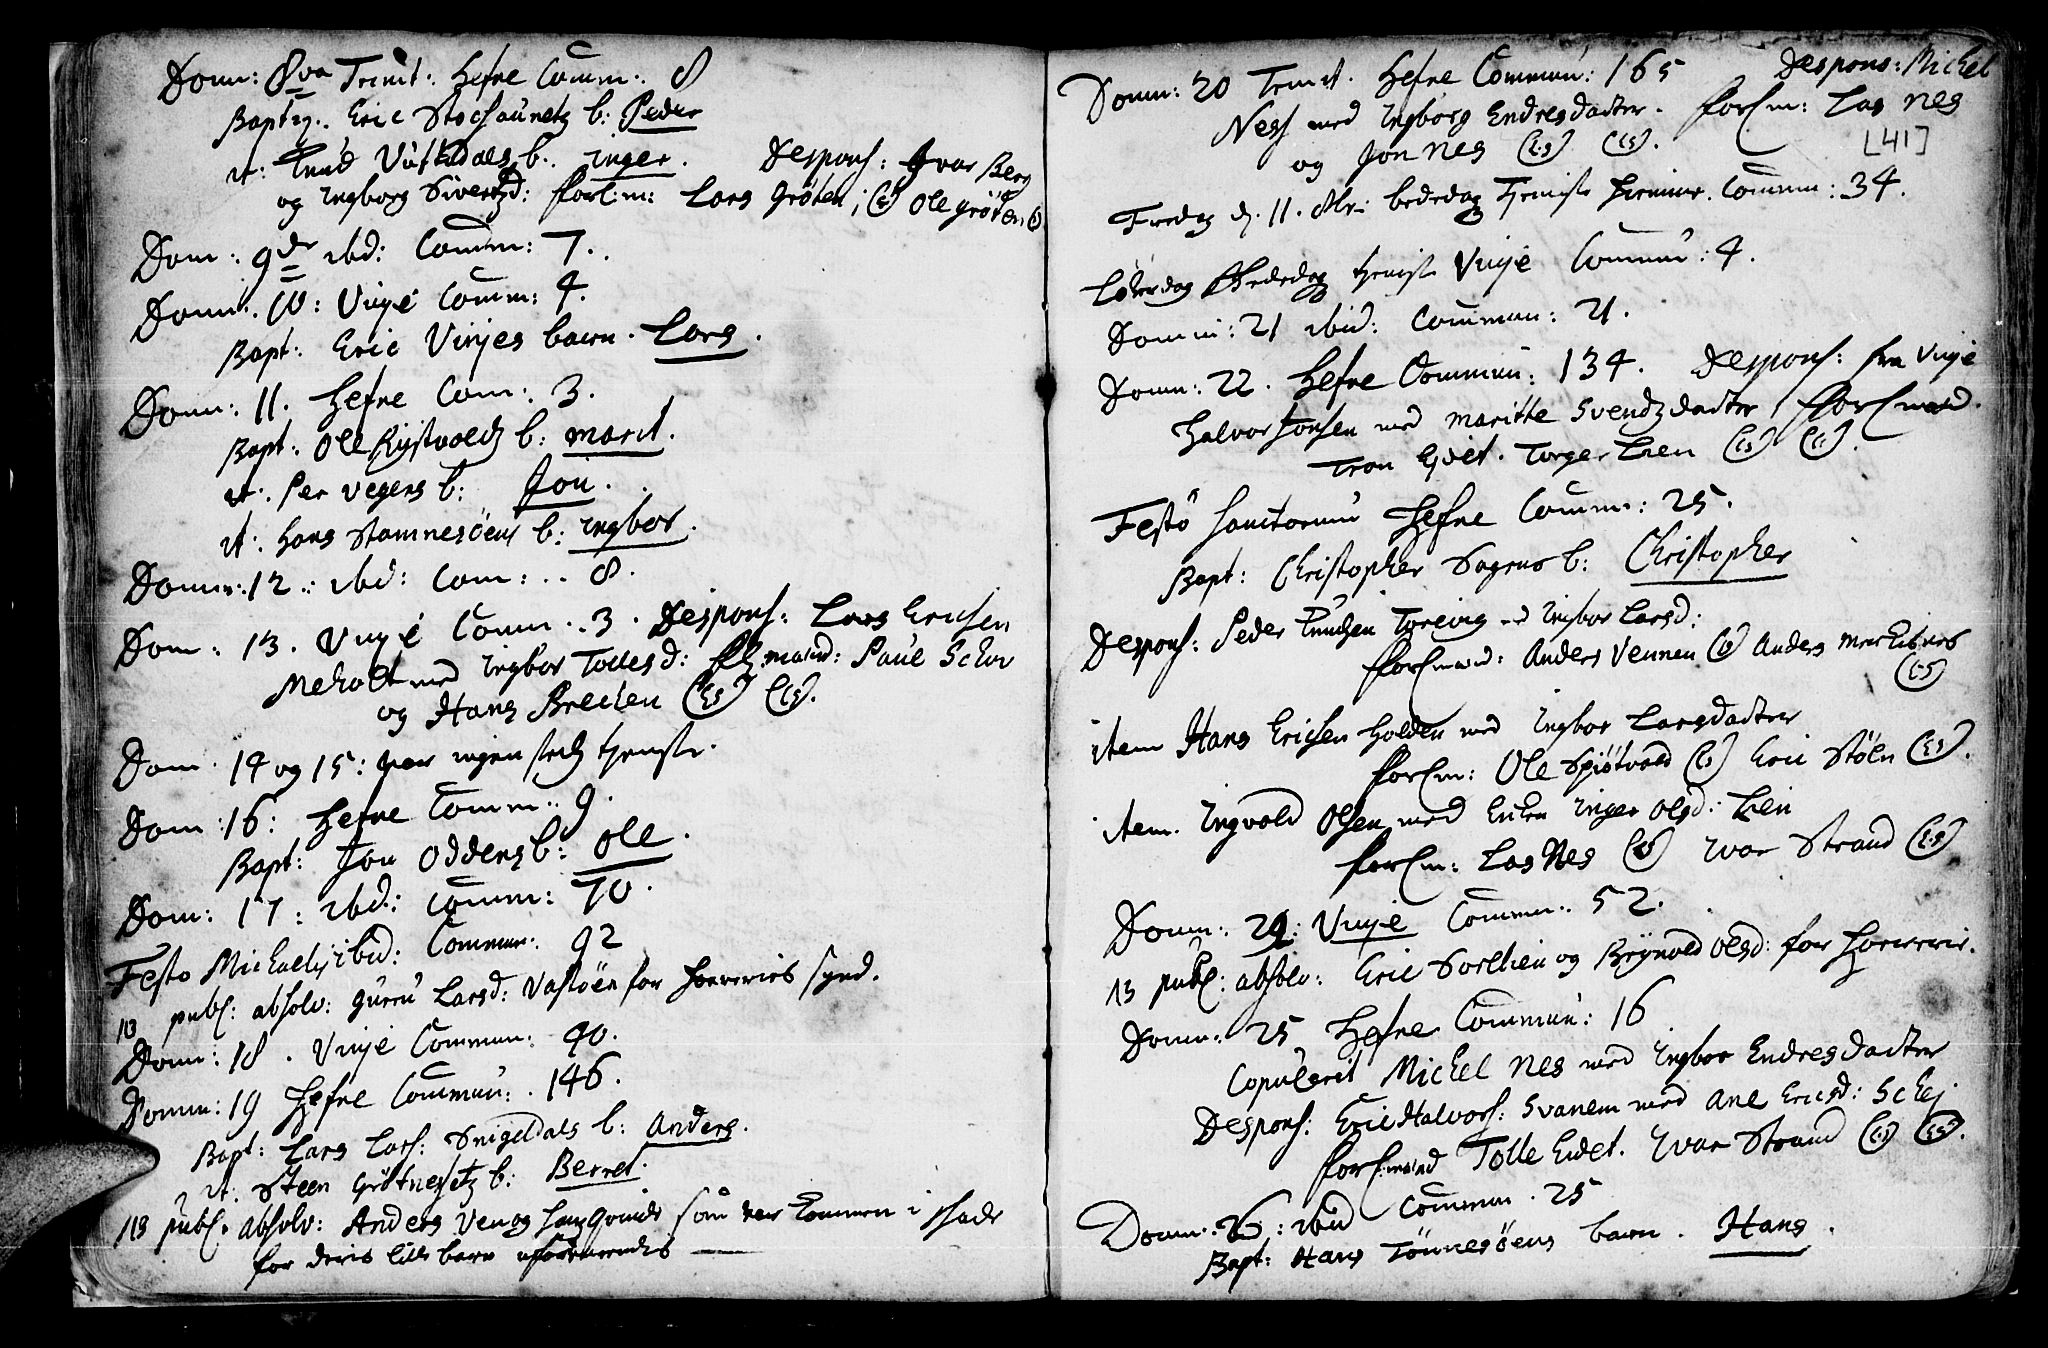 Dom: 8va Trinit: Hefne Comm: 8
Bapt: Eric b: Peder
it: Knud b: Inger. Despons: Ivar Berg
og Ingborg Sivertzd: forl:m: Lars Grøten, (LS) Ole Grøten (LS)
Dom: 9de ibid: Comm: 7.
Dom: 10: Vinje Comm: 4.
Bapt: Eric Vinjes barn. Lars.
Dom: 11. Hefne Com: 3.
Bapt: Ole b: Marit.
it: Per Vegens b: Jon.
it: Hans Stamnesøens b: Ingbor.
Dom: 12: ibid: Com: 8.
Dom: 13. Vinje Comm: 3. Despons: Lars Erichsen
Meholt med Ingbor Tollesd: mænd: Paul
og Hans Brechen (LS) (LS).
Dom. 14 og 15: ingen tieniste.
Dom: 16: Hefne Comm: 9.
Bapt: Jon Oddens b: Ole.
Dom: 17: ibid: Comm: 70.
Festo Michaelis ibid: Commun: 92
publ: absolv: Guru Larsd: Vasløen for synd.
Dom: 18. Vinje Commun: 40.
Domin: 19 Hefne Commun: 146.
Bapt: Lars Lars: Snigeldals b: Anders.
it: Steen b: Berret.
publ. absolv: Anders Ven og som var kommen i skade
for deris lille barn
Domin: 20 Trinit. Hefne Commun: 165 Despons: Michel
Ness med Ingborg Endresdatter. forl:m: Las Nes
og Jon Nes (LS) (LS).
[41]
Fredag d. 11. bededag Comm: 34.
Løverdag Bededag Vinje Commun: 4.
Domin: 21 ibid: Commun: 21.
Domin: 22. Hefne Commun: 134. Despons: fra Vinje
Halvor Jonsen med Maritte Svendzdatter, forlmænd.
Tron Eidet. Torger Lien (LS) (LS).
Festo Sanctorum Hefne Comm: 25.
Bapt: Christopher b: Christopher
Despons: Peder Knudsen med Ingbor Larsd:
forlmænd: Anders Vennen (LS) Anders
(LS)
item Hans Erichsen Holden med Ingbor Larsdatter
forlm: Ole (LS) Eric Støln (LS).
item. Ingvold Olsen med Enken Inger Olsd: Lien
forlm: Las Nes (LS) Ivar Strand (LS)
Dom: 24: Vinje Commun: 52.
publ: absolv: Eric og Olsd: for
Domin: 25 Hefne Commun: 16
Copulerit Michel Nes med Ingbor Endresdatter
Despons: Eric Halvors: Svanem med Ane Ericsd:
forlmænd Tolle Eidet. Ivar Strand (LS) (LS).
Domin: 26: ibid Commun. 25
Bapt: Hans Tønnesøens barn. Hans.